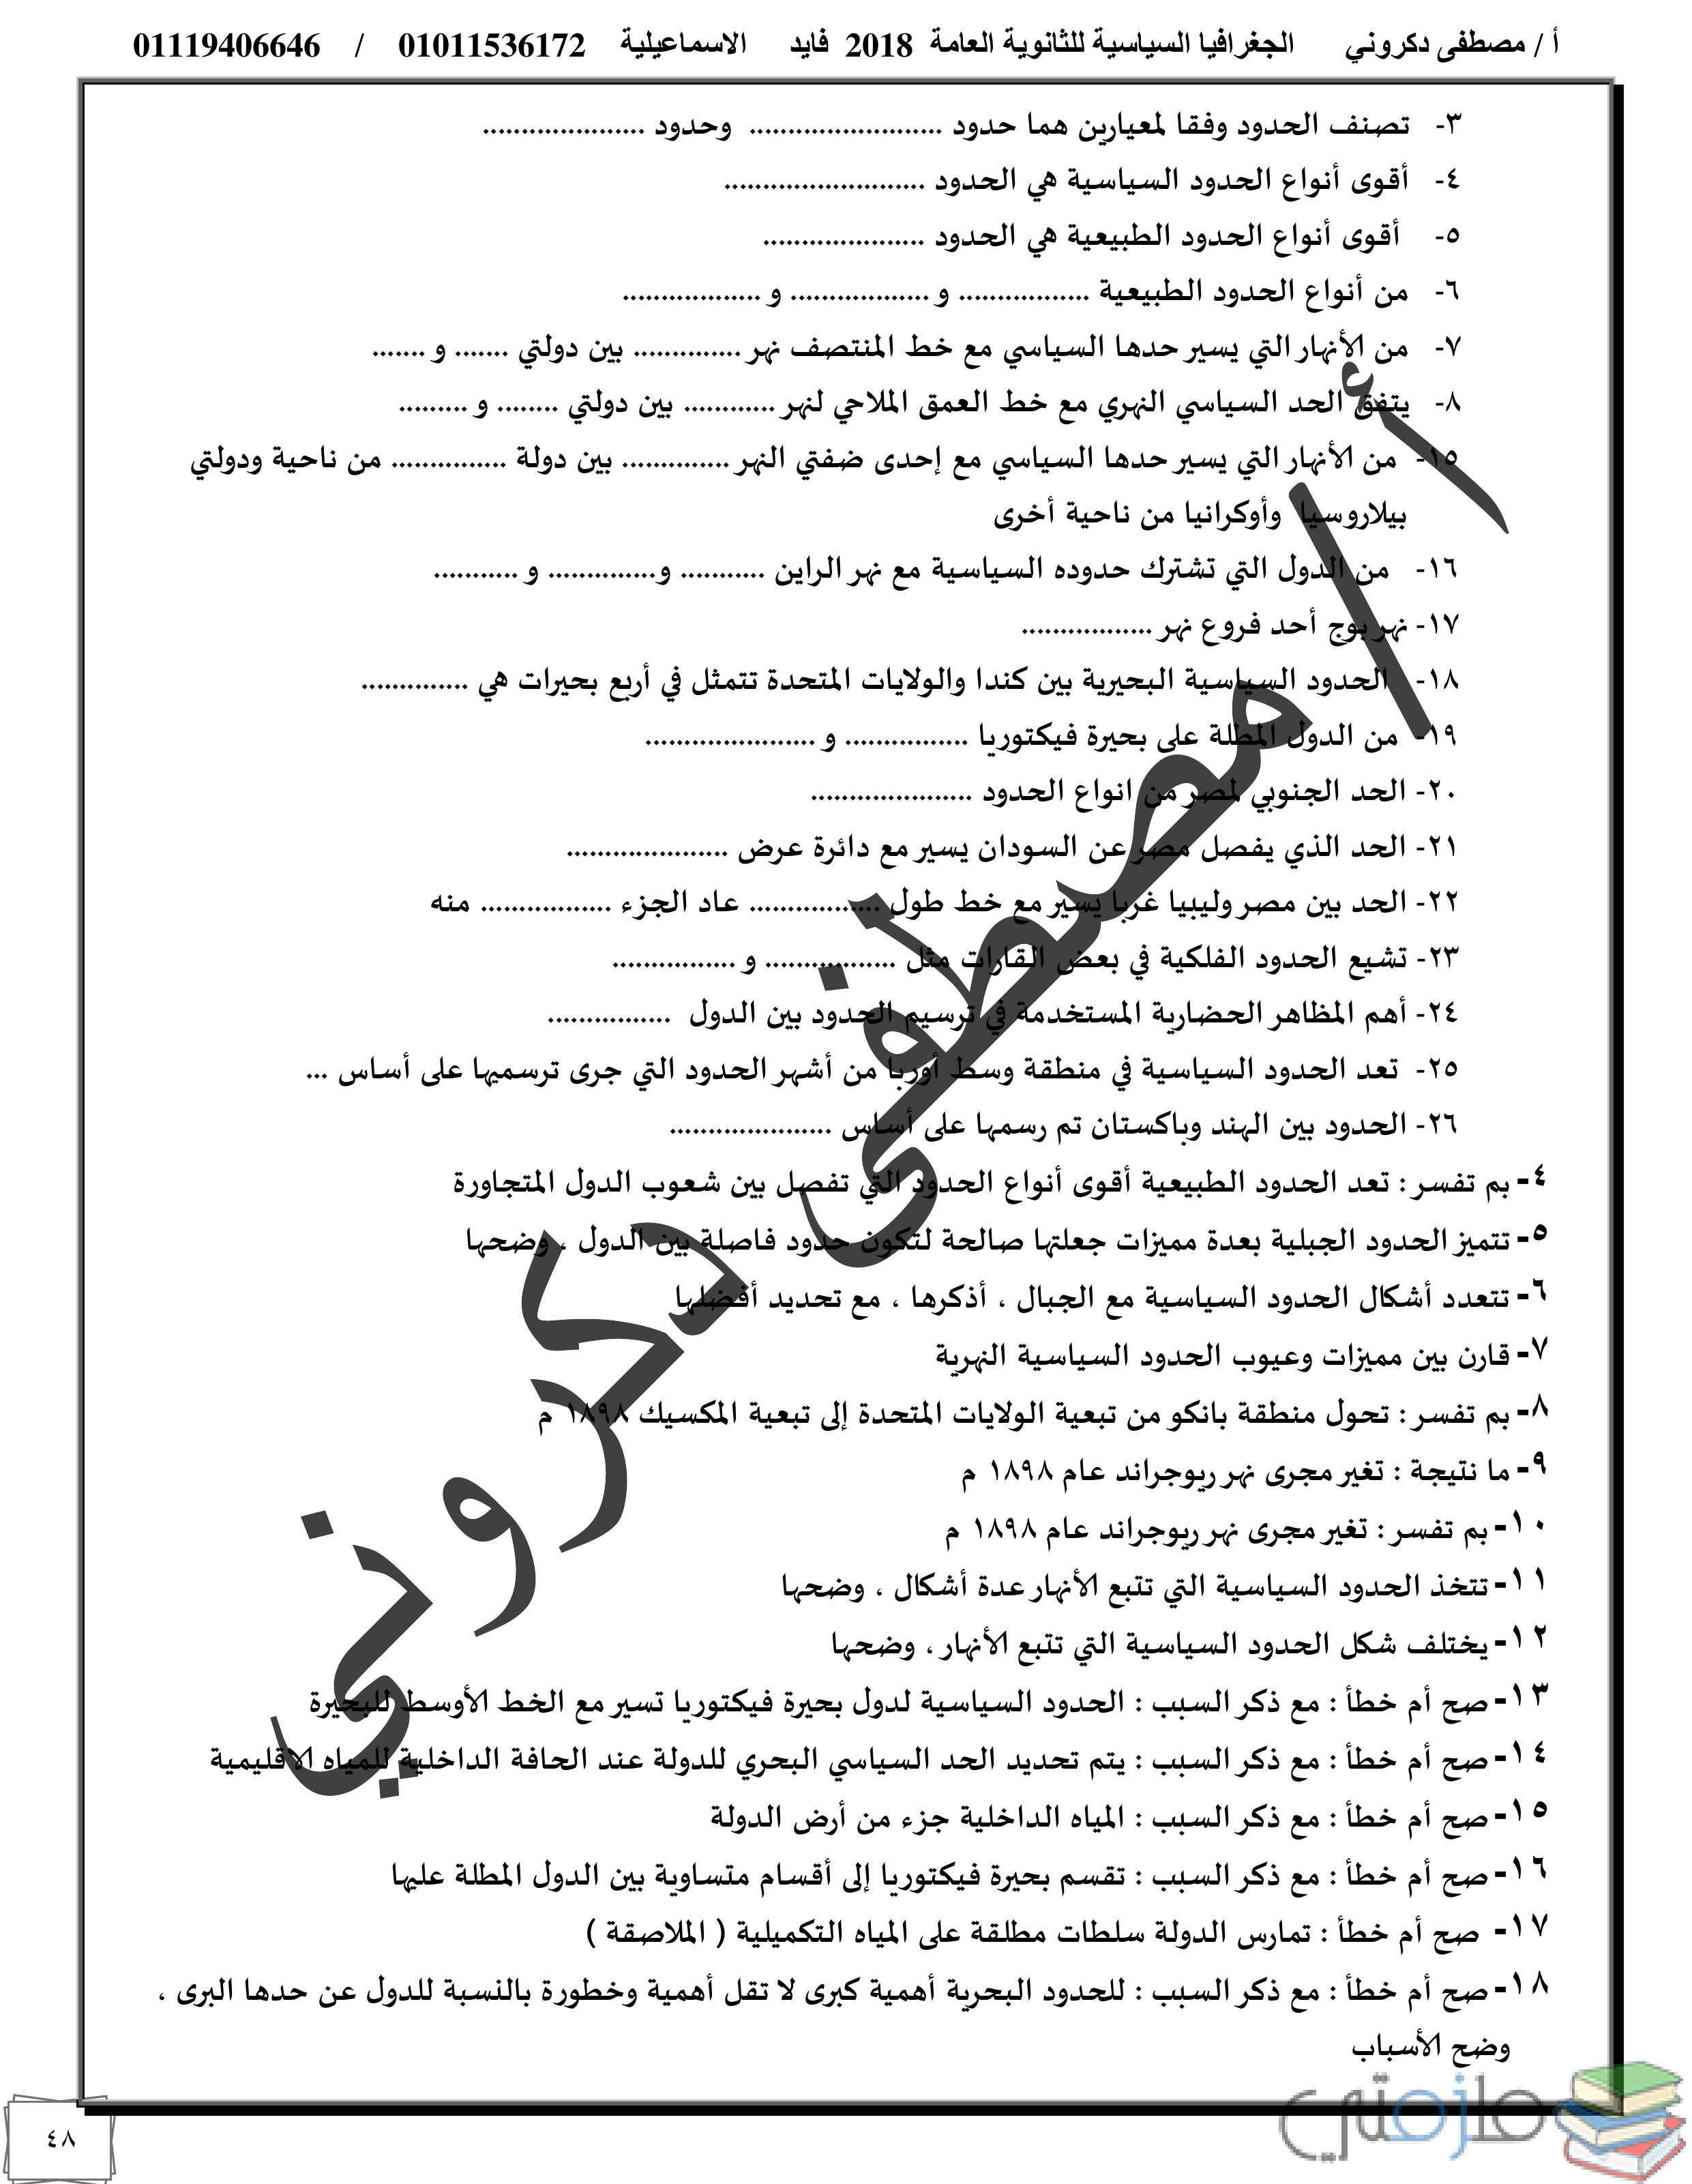 أ / مصطفى دكروني الجغرافيا السياسية للثانوية العامة 2018 فايد الاسماعيلية 01011536172 / 01119406646
٣- تصنف الحدود وفقا لمعيارين هما حدود ......................... وحدود .....................
٤- أقوى أنواع الحدود السياسية هي الحدود ..........................
٥- أقوى أنواع الحدود الطبيعية هي الحدود .....................
٦- من أنواع الحدود الطبيعية ................. و .................. و ..................
٧- من الأنهار التي يسير حدها السياسي مع خط المنتصف نهر .............. بين دولتي ....... و .......
٨- يتفق الحد السياسي النهري مع خط العمق الملاحي لنهر ............ بين دولتي ........ و .........
١٥- من الأنهار التي يسير حدها السياسي مع إحدى ضفتي النهر .............. بين دولة ............... من ناحية ودولتي
بيلاروسيا وأوكرانيا من ناحية أخرى
١٦- من الدول التي تشترك حدوده السياسية مع نهر الراين ........... و.............. و ...........
١٧- نهر بوج أحد فروع نهر .................
١٨- الحدود السياسية البحيرية بين كندا والولايات المتحدة تتمثل في أربع بحيرات هي ..............
١٩- من الدول المطلة على بحيرة فيكتوريا ................ و ......................
٢٠- الحد الجنوبي لمصر من انواع الحدود .....................
٢١- الحد الذي يفصل مصر عن السودان يسير مع دائرة عرض .....................
٢٢- الحد بين مصر وليبيا غربا يسير مع خط طول ................. عاد الجزء ................. منه
٢٣- تشيع الحدود الفلكية في بعض القارات مثل ................. و ................
٢٤- أهم المظاهر الحضارية المستخدمة في ترسيم الحدود بين الدول ................
٢٥- تعد الحدود السياسية في منطقة وسط أوربا من أشهر الحدود التي جرى ترسميها على أساس ...
٢٦- الحدود بين الهند وباكستان تم رسمها على أساس .....................
٤- بم تفسر : تعد الحدود الطبيعية أقوى أنواع الحدود التي تفصل بين شعوب الدول المتجاورة
٥- تتميز الحدود الجبلية بعدة مميزات جعلتها صالحة لتكون حدود فاصلة بين الدول ، وضحها
٦- تتعدد أشكال الحدود السياسية مع الجبال ، أذكرها ، مع تحديد أفضلها
٧- قارن بين مميزات وعيوب الحدود السياسية النهرية
٨- بم تفسر : تحول منطقة بانكو من تبعية الولايات المتحدة إلى تبعية المكسيك ١٨٩٨ م
٩- ما نتيجة : تغير مجرى نهر ريوجراند عام ١٨٩٨ م
١٠- بم تفسر : تغير مجرى نهر ريوجراند عام ١٨٩٨ م
١١- تتخذ الحدود السياسية التي تتبع الأنهار عدة أشكال ، وضحها
١٢- يختلف شكل الحدود السياسية التي تتبع الأنهار ، وضحها
١٣- صح أم خطأ : مع ذكر السبب : الحدود السياسية لدول بحيرة فيكتوريا تسير مع الخط الأوسط للبحيرة
١٤- صح أم خطأ : مع ذكر السبب : يتم تحديد الحد السياسي البحري للدولة عند الحافة الداخلية للمياه الاقليمية
١٥- صح أم خطأ : مع ذكر السبب : المياه الداخلية جزء من أرض الدولة
١٦- صح أم خطأ : مع ذكر السبب : تقسم بحيرة فيكتوريا إلى أقسام متساوية بين الدول المطلة عليها
١٧- صح أم خطأ : تمارس الدولة سلطات مطلقة على المياه التكميلية ( الملاصقة )
١٨- صح أم خطأ : مع ذكر السبب : للحدود البحرية أهمية كبرى لا تقل أهمية وخطورة بالنسبة للدول عن حدها البرى ،
وضح الأسباب
أ / مصطفى دكروني
ملزمتي
٤٨